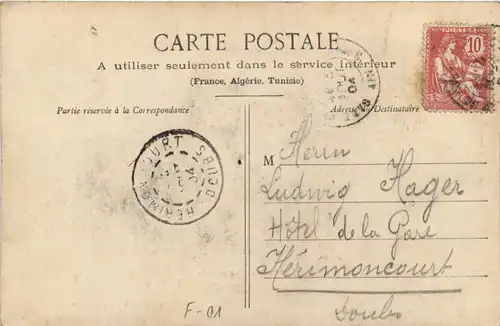 CARTE POSTALE
A utiliser seulement dans le service intérieur
(France, Algérie, Tunisie)
Partie réservée à la Correspondance
Adresse du Destinataire
POSTES
10
HERIMONCOURT DOUBS
04
M Herrn
Ludwig Hager
Hôtel de la Gare
Hérimoncourt
Doubs
F-01